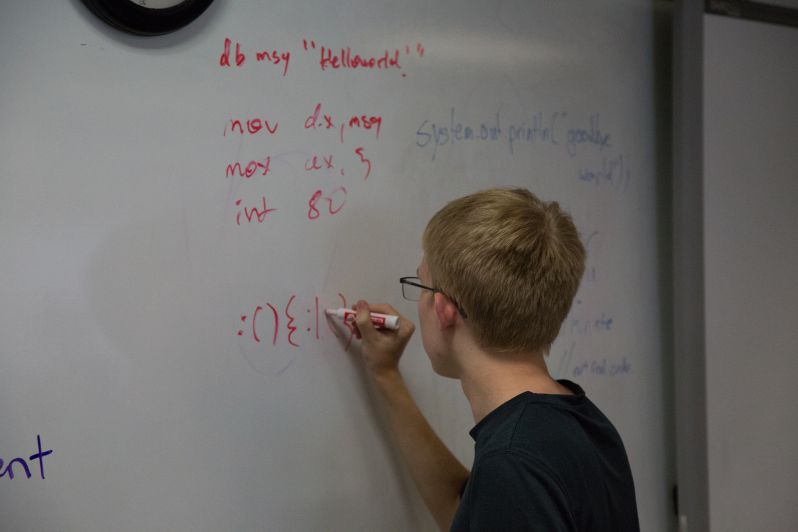 db msg "Helloworld!"
mov dx, msg
mov ax, }
int 80
:(){:|
system.out.println("goodbye
world");
// not real code
ent